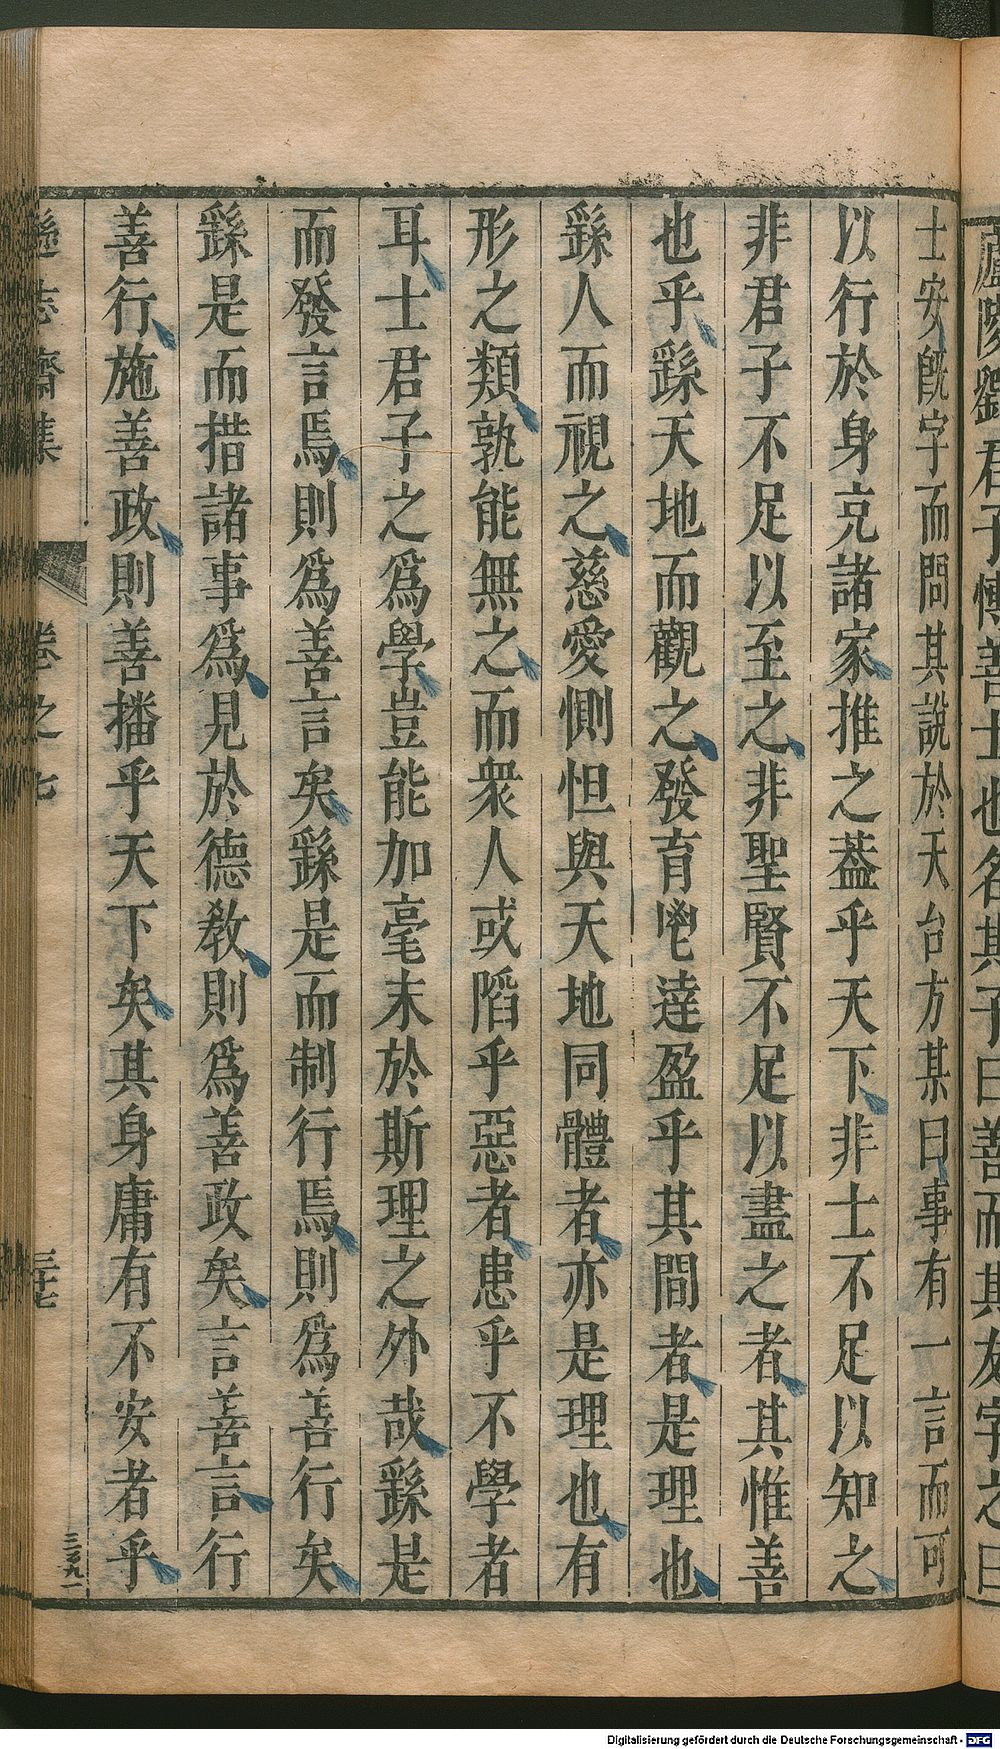 廬陵劉君子博善士也名其子曰善而其友字之曰
士安旣字而問其說於天台方某曰事有一言而可
以行於身克諸家推之葢乎天下非士不足以知之
非君子不足以至之非聖賢不足以盡之者其惟善
也乎繇天地而觀之發育鬯達盈乎其間者是理也
繇人而視之慈愛惻怛與天地同體者亦是理也有
形之類孰能無之而衆人或陷乎惡者患乎不學者
耳士君子之爲學豈能加毫末於斯理之外哉繇是
而發言焉則爲善言矣繇是而制行焉則爲善行矣
繇是而措諸事爲見於德敎則爲善政矣言善言行
善行施善政則善播乎天下矣其身庸有不安者乎
遜志齋集 卷之七 三十七
Digitalisierung gefördert durch die Deutsche Forschungsgemeinschaft - DFG